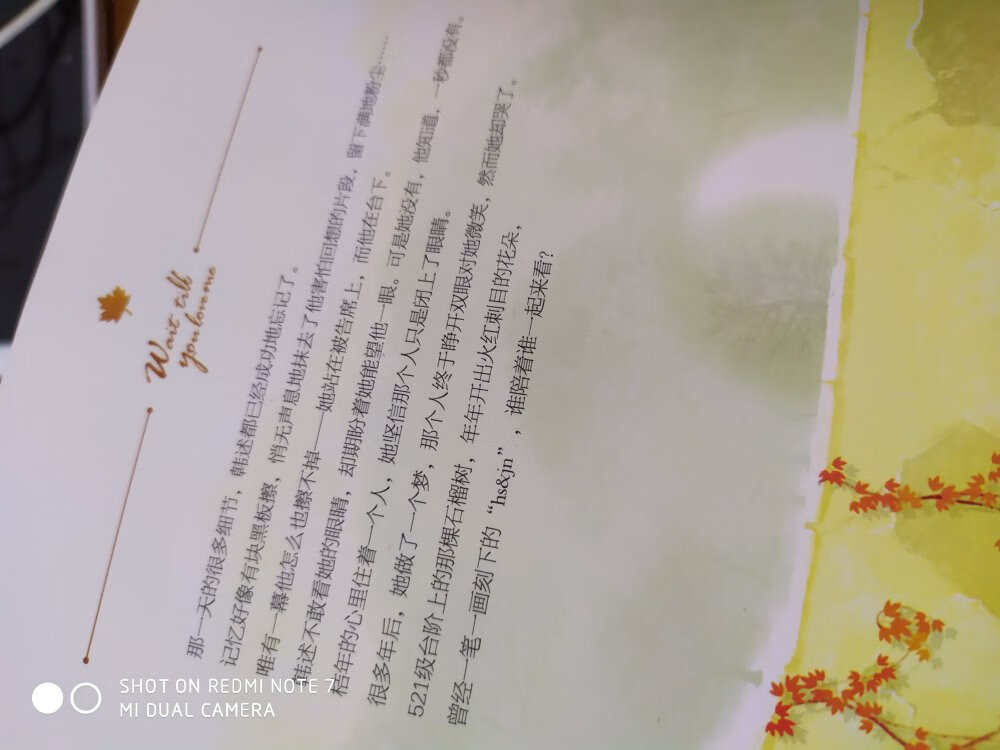 Wait till
you love me
那一天的很多细节，韩述都已经成功地忘记了。
记忆好像有块黑板擦，悄无声息地抹去了他害怕回想的片段，留下满地粉尘……
唯有一幕他怎么也擦不掉——她站在被告席上，而他在台下。
韩述不敢看她的眼睛，却期盼着她能望他一眼。可是她没有，他知道，一秒都没有。
桔年的心里住着一个人，她坚信那个人只是闭上了眼睛。
很多年后，她做了一个梦，那个人终于睁开双眼对她微笑，然而她却哭了。
521级台阶上的那棵石榴树，年年开出火红刺目的花朵，
曾经一笔一画刻下的“hs&jn”，谁陪着谁一起来看？
SHOT ON REDMI NOTE 7
MI DUAL CAMERA